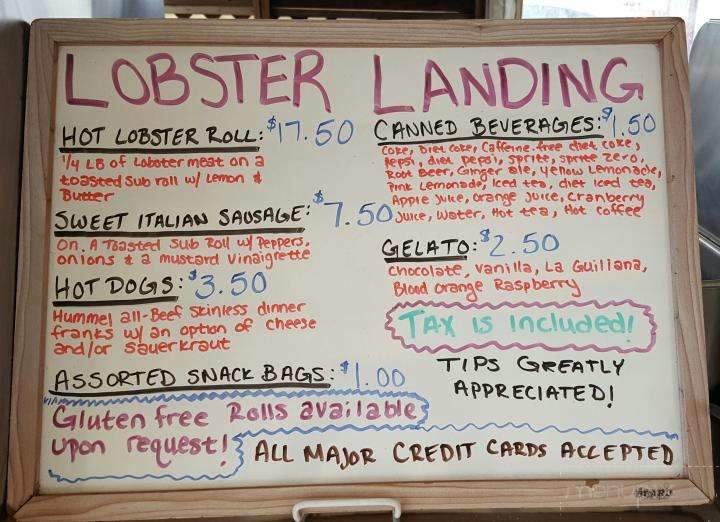 LOBSTER LANDING
HOT LOBSTER ROLL: $17.50
1/4 LB of Lobster meat on a
toasted Sub roll w/ Lemon &
Butter
SWEET ITALIAN SAUSAGE: $7.50
On A Toasted Sub Roll w/ Peppers,
onions & a mustard Vinaigrette
HOT DOGS: $3.50
Hummel all-Beef Skinless dinner
franks w/ an option of cheese
and/or Sauerkraut
ASSORTED SNACK BAGS: $1.00
Gluten free Rolls available
upon request!
CANNED BEVERAGES: $1.50
Coke, Diet Coke, Caffeine-free diet coke,
Pepsi, diet pepsi, sprite, sprite zero,
Root Beer, Ginger ale, yellow Lemonade,
Pink Lemonade, Iced tea, diet iced tea,
Apple Juice, orange juice, Cranberry
Juice, water, Hot tea, Hot coffee
GELATO: $2.50
Chocolate, Vanilla, La Guiliana,
Blood Orange Raspberry
TAX is included!
TIPS GREATLY
APPRECIATED!
ALL MAJOR CREDIT CARDS ACCEPTED